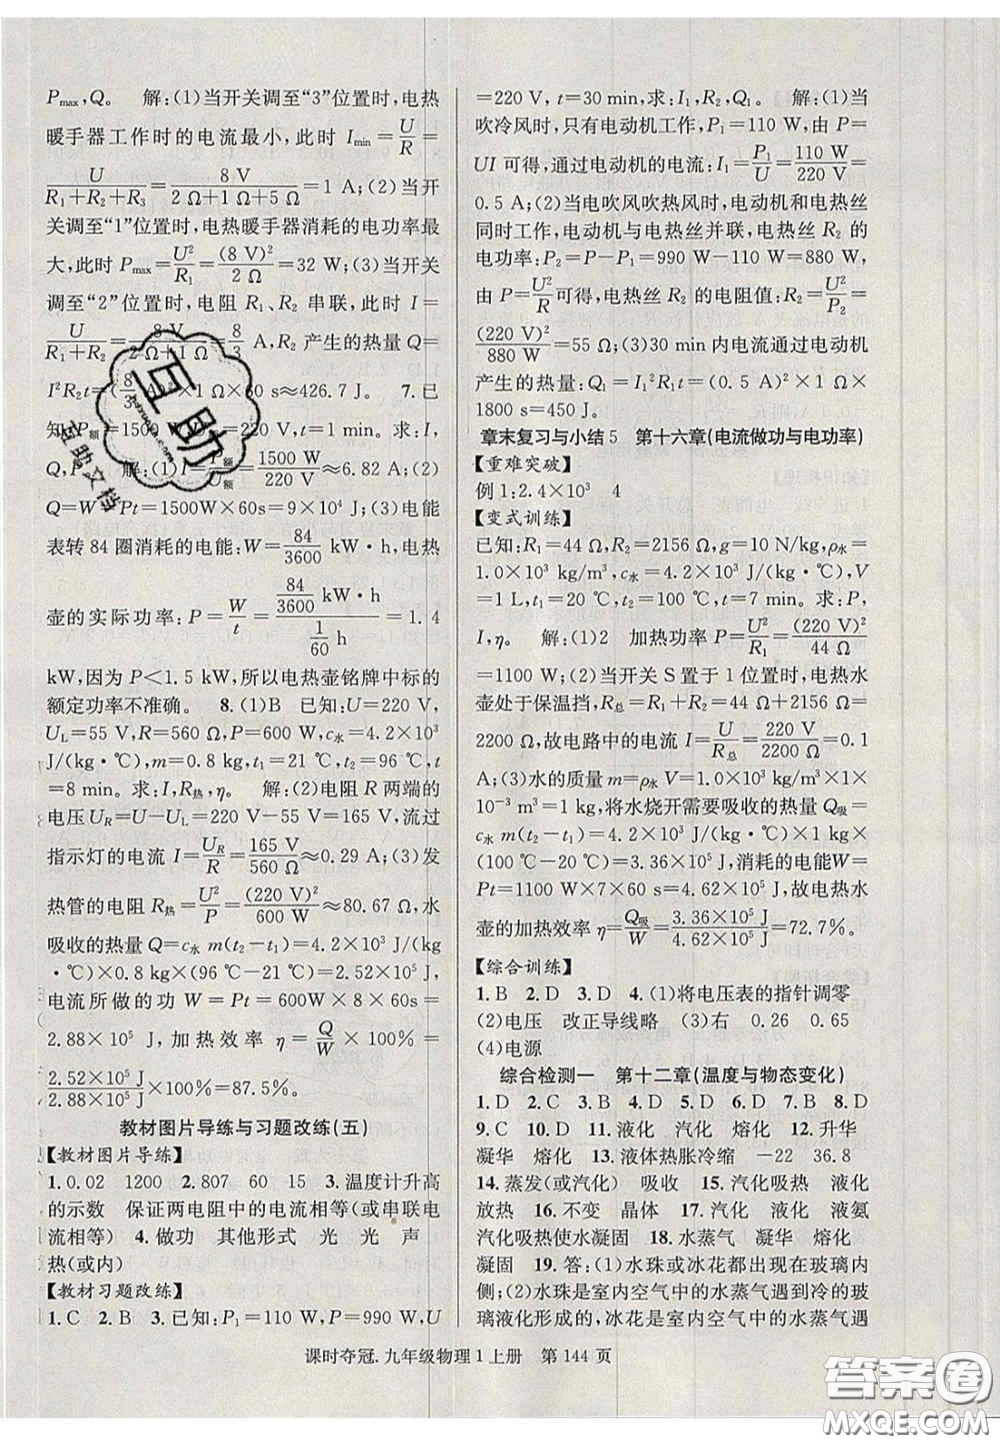 P_max,Q。 解:(1)当开关调至“3”位置时,电热
暖手器工作时的电流最小,此时 I_min=U/R=
U/(R₁+R₂+R₃)=8 V/(2 Ω+1 Ω+5 Ω)=1 A;(2)当开
关调至“1”位置时,电热暖手器消耗的电功率最
大,此时 P_max=U²/R₁=(8 V)²/2 Ω=32 W;(3)当开关
调至“2”位置时,电阻 R₁、R₂ 串联,此时 I=
U/(R₁+R₂)=8 V/(2 Ω+1 Ω)=8/3 A,R₂ 产生的热量 Q=
I²R₂t=(8/3 A)²×1 Ω×60 s≈426.7 J。 7.已
知:P=1500 W,t=60 s,P=1500 W。求:I,
Q,P。 解:I额=P额/U额=1500 W/220 V≈6.82 A;(2)
Q=W=Pt=1500W×60s=9×10⁴ J;(3)电能
表转 84 圈消耗的电能:W=84/3600 kW·h,电热
壶的实际功率:P=W/t=(84/3600 kW·h)/(1/60 h)=1.4
kW,因为 P<1.5 kW,所以电热壶铭牌中标的
额定功率不准确。 8.(1)B 已知:U=220 V,
U_L=55 V,R=560 Ω,P=600 W,c水=4.2×10³
J/(kg·℃),m=0.8 kg,t₁=21 ℃,t₂=96 ℃,t
=8 min。求:I,R热,η。 解:(2)电阻 R 两端的
电压U_R=U-U_L=220 V-55 V=165 V,流过
指示灯的电流 I=U_R/R=165 V/560 Ω≈0.29 A;(3)发
热管的电阻 R热=U²/P=(220 V)²/600 W≈80.67 Ω,水
吸收的热量 Q=c水 m(t₂-t₁)=4.2×10³ J/(kg
·℃)×0.8 kg×(96 ℃-21 ℃)=2.52×10⁵ J,
电流所做的功 W=Pt=600W×8×60s=
2.88×10⁵ J,加热效率 η=Q/W×100%=
2.52×10⁵ J/2.88×10⁵ J×100%=87.5%。
教材图片导练与习题改练(五)
【教材图片导练】
1.0.02 1200 2.807 60 15 3.温度计升高
的示数 保证两电阻中的电流相等(或串联电
流相等) 4.做功 其他形式 光 光 声
热(或内)
【教材习题改练】
1.C 2.B 3.已知:P₁=110 W,P=990 W,U
=220 V,t=30 min,求:I₁,R₂,Q₁。 解:(1)当
吹冷风时,只有电动机工作,P₁=110 W,由 P=
UI 可得,通过电动机的电流:I₁=P₁/U=110 W/220 V=
0.5 A;(2)当电吹风吹热风时,电动机和电热丝
同时工作,电动机与电热丝并联,电热丝 R₂ 的
电功率:P₂=P-P₁=990 W-110 W=880 W,
由 P=U²/R可得,电热丝 R₂ 的电阻值:R₂=U²/P₂=
(220 V)²/880 W=55 Ω;(3)30 min 内电流通过电动机
产生的热量:Q₁=I₁²R₁t=(0.5 A)²×1 Ω×
1800 s=450 J。
章末复习与小结5 第十六章(电流做功与电功率)
【重难突破】
例 1:2.4×10³ 4
【变式训练】
已知:R₁=44 Ω,R₂=2156 Ω,g=10 N/kg,ρ水=
1.0×10³ kg/m³,c水=4.2×10³ J/(kg·℃),V
=1 L,t₁=20 ℃,t₂=100 ℃,t=7 min。求:P,
I,η。 解:(1)2 加热功率 P=U²/R₁=(220 V)²/44 Ω
=1100 W;(2)当开关 S 置于 1 位置时,电热水
壶处于保温挡,R总=R₁+R₂=44 Ω+2156 Ω=
2200 Ω,故电路中的电流 I=U/R总=220 V/2200 Ω=0.1
A;(3)水的质量 m=ρ水 V=1.0×10³ kg/m³×1
×10⁻³ m³=1 kg,将水烧开需要吸收的热量 Q吸=
c水 m(t₂-t₁)=4.2×10³ J/(kg·℃)×1 kg
×(100 ℃-20 ℃)=3.36×10⁵ J,消耗的电能W=
Pt=1100 W×7×60 s=4.62×10⁵ J,故电热水
壶的加热效率 η=Q吸/W=3.36×10⁵ J/4.62×10⁵ J=72.7%。
【综合训练】
1.B 2.D 3.D 4.(1)将电压表的指针调零
(2)电压 改正导线略 (3)右 0.26 0.65
(4)电源
综合检测一 第十二章(温度与物态变化)
1.D 2.C 3.B 4.D 5.D 6.D 7.B 8.D
9.C 10.D 11.液化 汽化 液化 12.升华
凝华 熔化 13.液体热胀冷缩 -22 36.8
14.蒸发(或汽化) 吸收 15.汽化吸热 液化
放热 16.不变 晶体 17.汽化 液化 液氨
汽化吸热使水凝固 18.水蒸气 凝华 熔化
凝固 19.答:(1)水珠或冰花都出现在玻璃内
侧;(2)水珠是室内空气中的水蒸气遇到冷的玻
璃液化形成的,冰花是室内空气中的水蒸气遇
课时夺冠.九年级物理1上册 第 144 页
互助
互助文档
答案圈
MXQE.COM